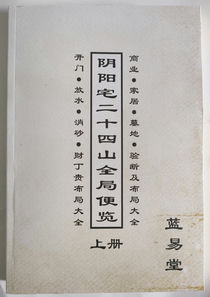 商业·家居·墓地·验断及布局大全
阴阳宅二十四山全局便览
开门·放水·消砂·财丁贵布局大全
上册
蓝易堂